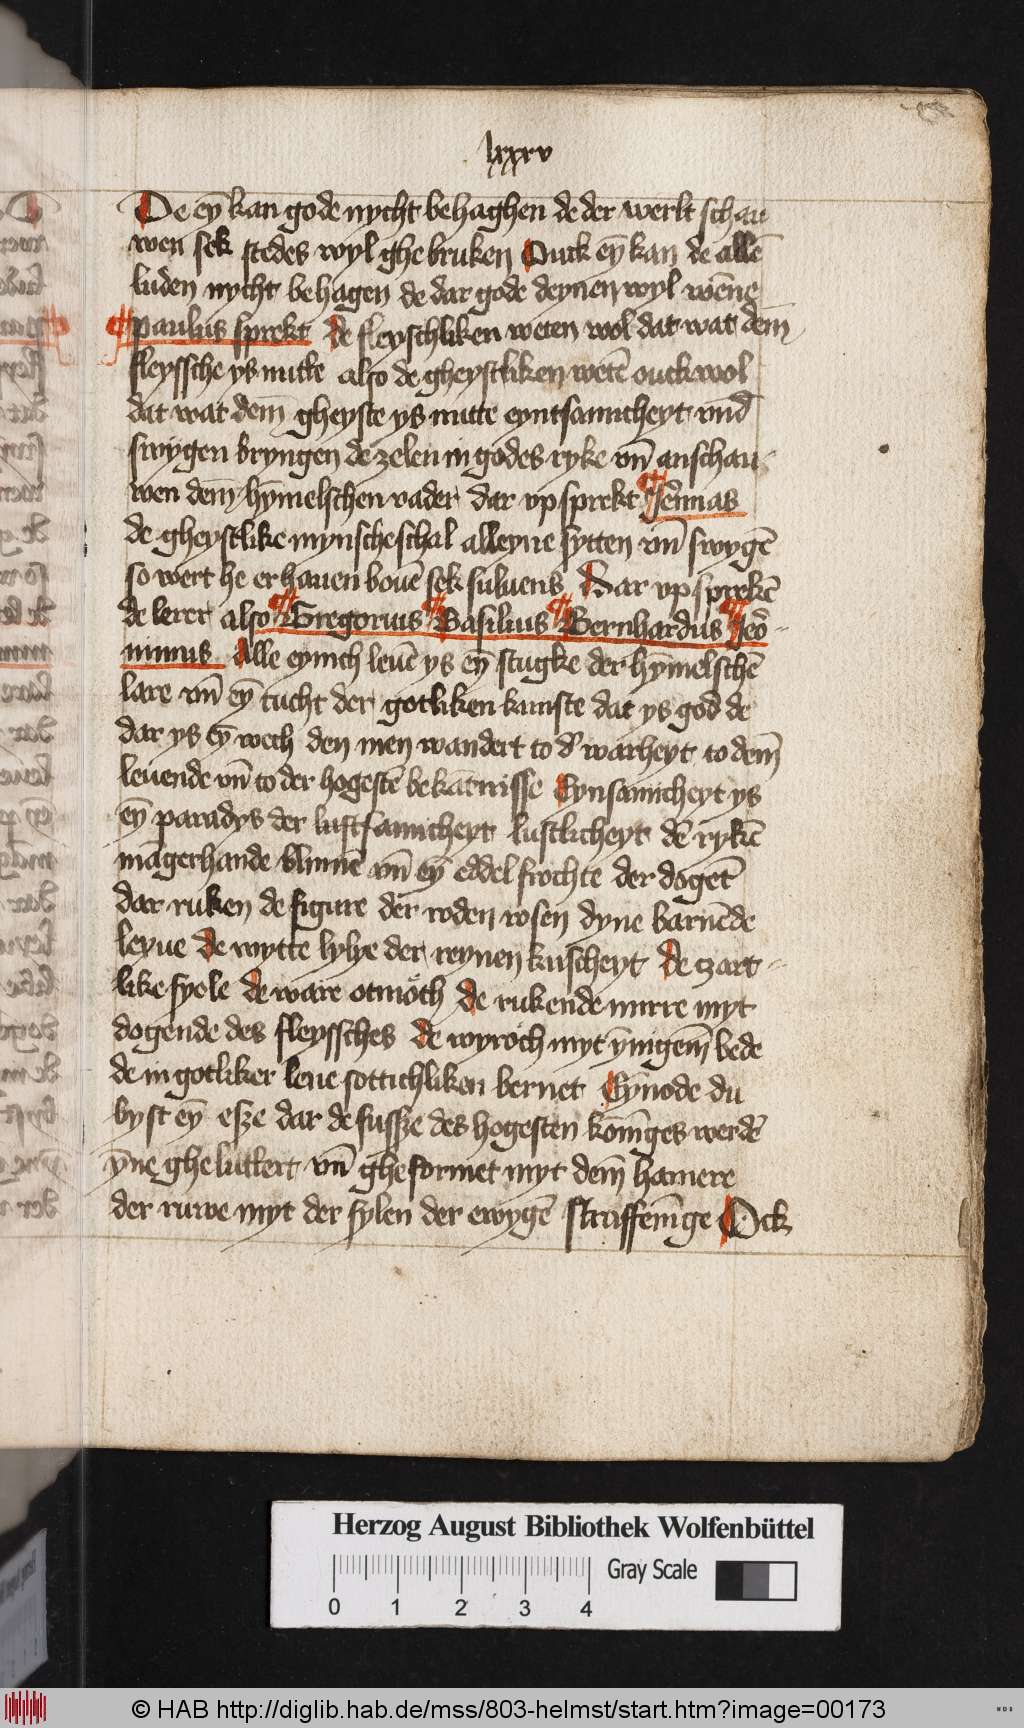 lxxxv
De eȳ kan gode nycht behaghen de der werlt schau
wen sek stedes wyl ghe bruken Ouck eȳ kan de allē
luden nycht behagen de dar gode deynen wyl wēne
paulus sprekt de fleyschliken weten wol dat wat dem̄
fleyssche ys nutte also de gheystliken wetē ouck wol
dat wat dem̄ gheyste ys nutte eyntsamicheyt vnd
swygen bryngen de zelen in godes ryke vn̄ anschau
wen dem̄ hȳmelschen vader dar vp sprekt
de gheystlike mynsche schal alleyne sytten vn̄ swygē
so wert he er hauen bouē sek suluens Dar vp sprekē
de lerer also Gregorius Basilius Bernhardus Jero
nimus Alle eynich leuē ys eȳ stugke der hȳmelschē
lare vn̄ eȳ tucht der gotliken kunste dat ys god de
dar ys eȳ wech den men wandert to d' warheyt to dem̄
leuende vn̄ to der hogestē bekātnisse Eynsamicheyt ys
eȳ paradys der lustsamicheyt lustlicheyt dē rykē
māgerhande blumē vn̄ eȳ eddel frochte der dogēt
dar ruken de figure der roden rosen dyne barnēde
leyue de wytte lylye der reynen kuscheyt de czart
like fyole de ware otmöth de rukende mirre myt
dogende des fleyssches de wyroch myt ȳnigem̄ bede
de in gotliker leue sottichliken bernet Eȳnode du
byst eȳ esze dar de fusze des hogesten kōniges werdē
ȳne ghe luttert vn̄ ghe formet myt dem̄ hamere
der ruwe myt der fylen der ewygē straffenīge Ock
Herzog August Bibliothek Wolfenbüttel
Gray Scale
0 1 2 3 4
© HAB http://diglib.hab.de/mss/803-helmst/start.htm?image=00173